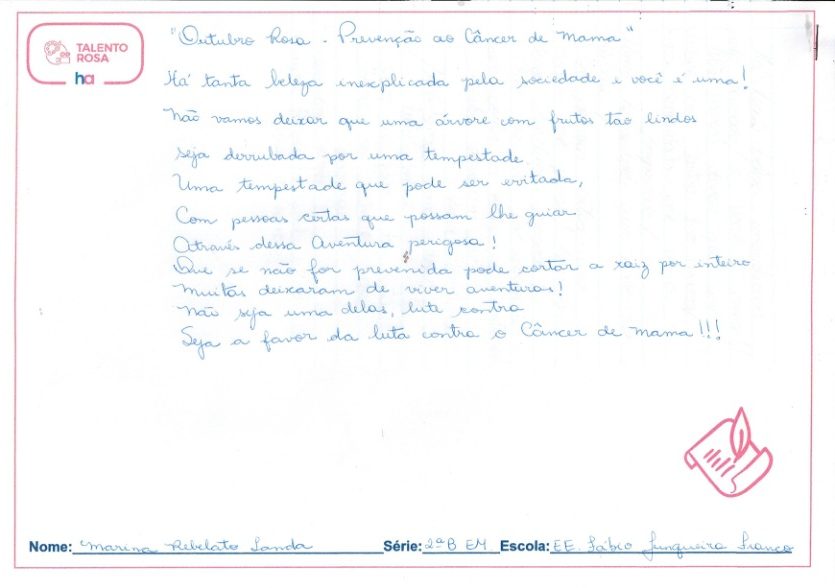 TALENTO
ROSA
ha
"Outubro Rosa - Prevenção ao Câncer de Mama"
Há tanta beleza inexplicada pela sociedade e você é uma!
Não vamos deixar que uma árvore com frutos tão lindos
seja derrubada por uma tempestade
Uma tempestade que pode ser evitada,
Com pessoas certas que possam lhe guiar
Através dessa Aventura perigosa!
Que se não for prevenida pode cortar a raiz por inteiro
Muitas deixaram de viver aventuras!
Não seja uma delas, lute contra
Seja a favor da luta contra o Câncer de Mama!!!
Nome: Marina Rebelato Landa Série: 2ª B EM Escola: EE. Fábio Junqueira Franco